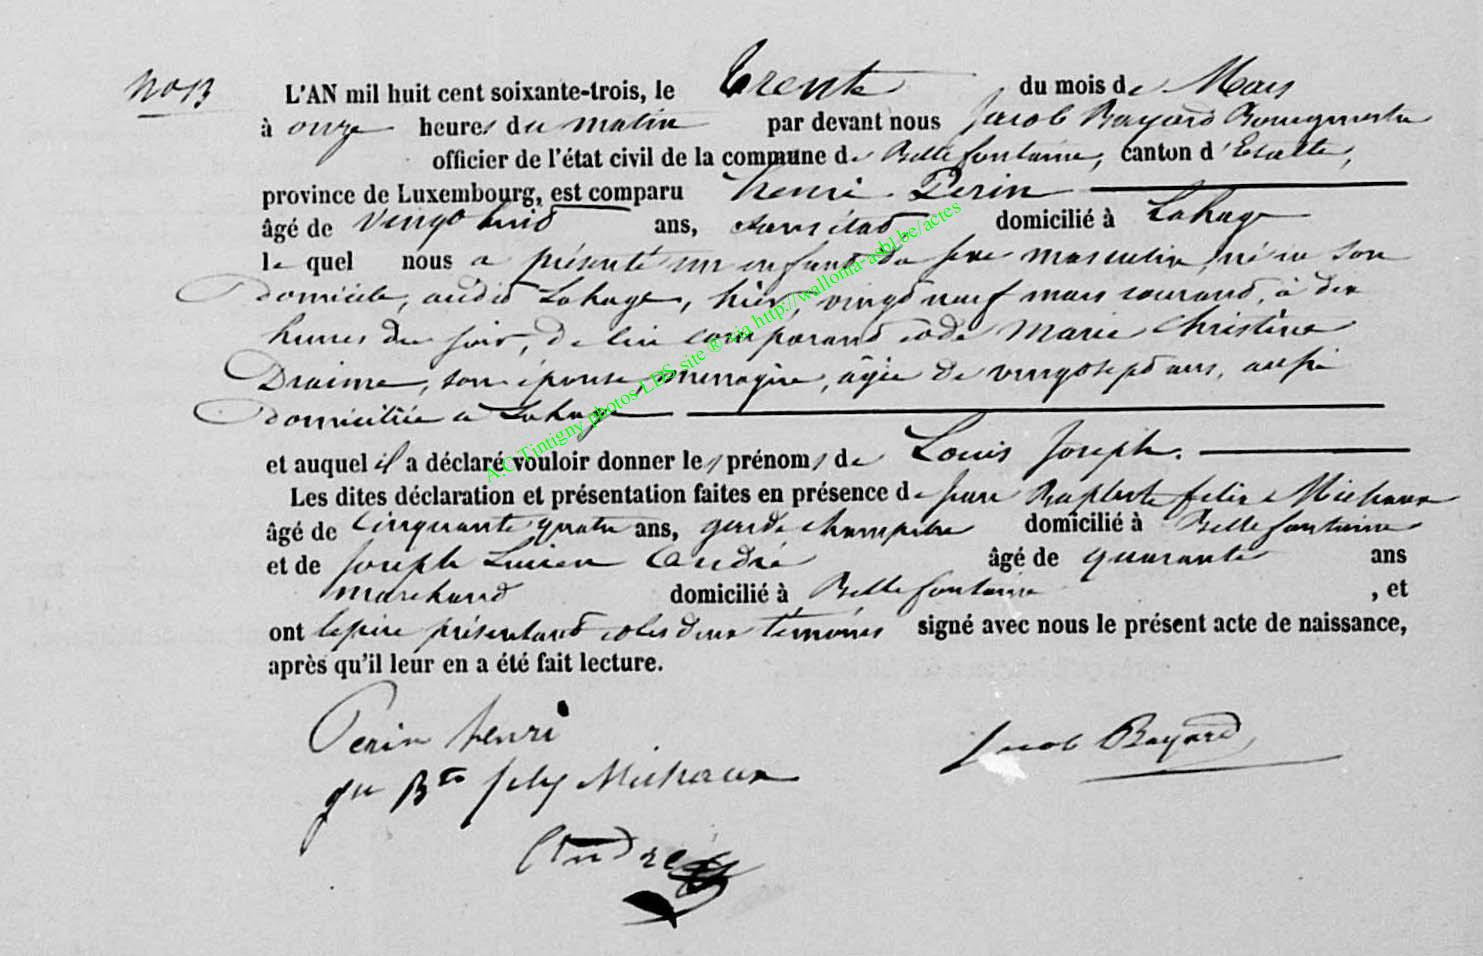 No 13
L'AN mil huit cent soixante-trois, le trente du mois de Mars
à onze heures du matin par devant nous Jacob Bayard Bourgmestre
officier de l'état civil de la commune de Bellefontaine, canton d'Etalle,
province de Luxembourg, est comparu henri Perin
âgé de vingt huit ans, sans état domicilié à Lahage
le quel nous a présenté un enfant du sexe masculin, né en son
domicile, audit Lahage, hier, vingt neuf mars courant, à dix
heures du soir, de lui comparant et de Marie Christine
Draime, son épouse, ménagère, âgée de vingt sept ans, aussi
domiciliée à Lahage
et auquel il a déclaré vouloir donner les prénoms de Louis Joseph.
Les dites déclaration et présentation faites en présence de Jean Baptiste felix Michaux
âgé de cinquante quatre ans, garde champêtre domicilié à Bellefontaine
et de Joseph Lucien André âgé de quarante ans
marchand domicilié à Bellefontaine , et
ont le père présentant et les deux témoins signé avec nous le présent acte de naissance,
après qu'il leur en a été fait lecture.
Perin henri
Jacob Bayard
jn Bte felix Michaux
André
A.C Tintigny photos LDS site ® via http://wallonia-asbl.be/actes